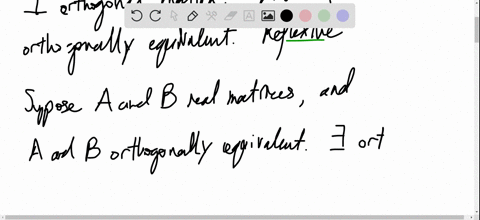 I orthogonal
orthogonally equivalent. Reflexive
Suppose A and B real matrices, and
A and B orthogonally equivalent. ∃ ort